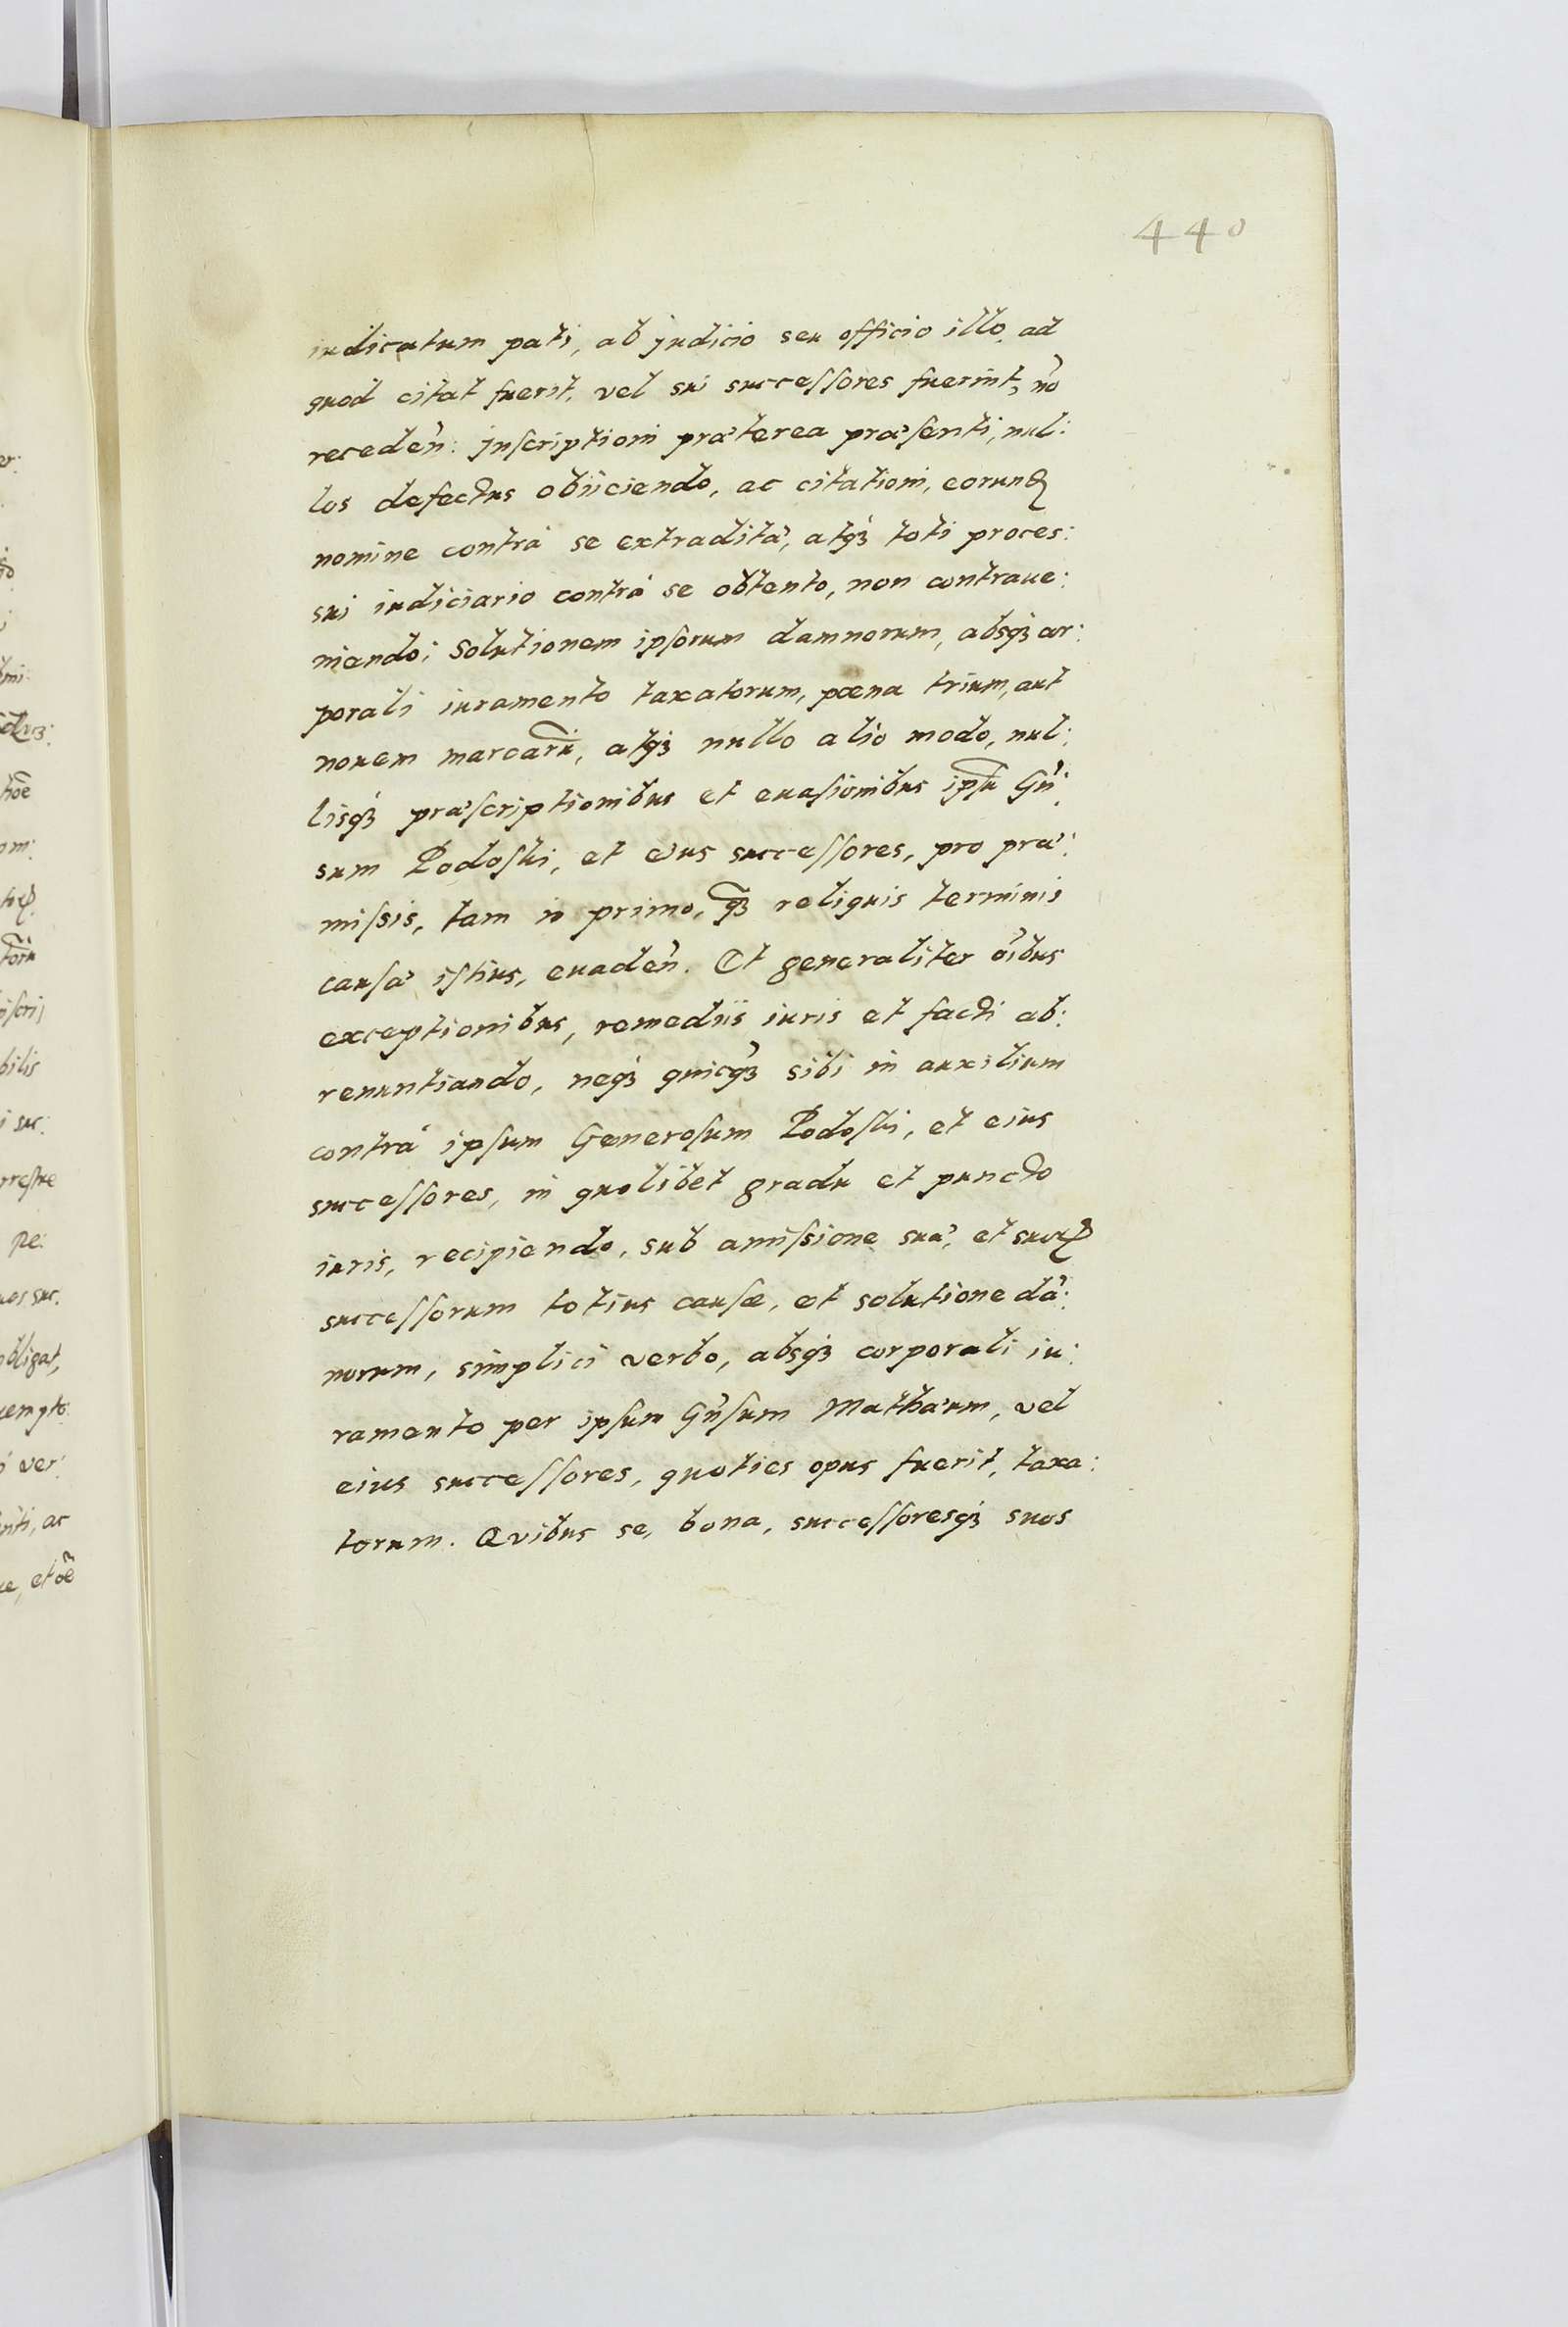 440
iudicatum pati, ab judicio seu officio illo, ad
quod citat fuerit, vel sui successores fuerint, nõ
receden̉: jnscriptioni præterea præsenti, nul:
los defectus obiiciendo, ac citationi, eorunꝗ
nomine contrà se extraditæ, atqꝫ toti proces:
sui iudiciario contrà se obtento, non contraue:
niendo; Solutionem ipsorum damnorum, absqꝫ cor:
porali iuramento taxatorum, pœna trium, aut
nouem marcarũ, atqꝫ nullo alio modo, nul:
lisqꝫ præscriptionibus et euasionibus ipsũ Gñ:
sum Podoski, et eius successores, pro præ:
missis, tam in primo, q̃ꝫ reliquis terminis
causæ istius, euaden̉. Et generaliter oĩbus
exceptionibus, remediis iuris et facti ab:
renuntiando, neqꝫ quicq̃ꝫ sibi in auxilium
contrà ipsum Generosum Podoski, et eius
successores, in quolibet gradu et puncto
iuris, recipiendo, sub amissione suæ, et suoꝝ
successorum totius causæ, et solutione dã:
norum, simplici verbo, absqꝫ corporali iu:
ramento per ipsum Gñsum Mathæum, vel
eius successores, quoties opus fuerit, taxa:
torum. Quibus se, bona, successoresqꝫ suos
er:
mi:
hõe
om:
bilis
i suc:
rrestre
pe:
uos suc.
obligat,
i ver:
nti, ac
ue, et õe